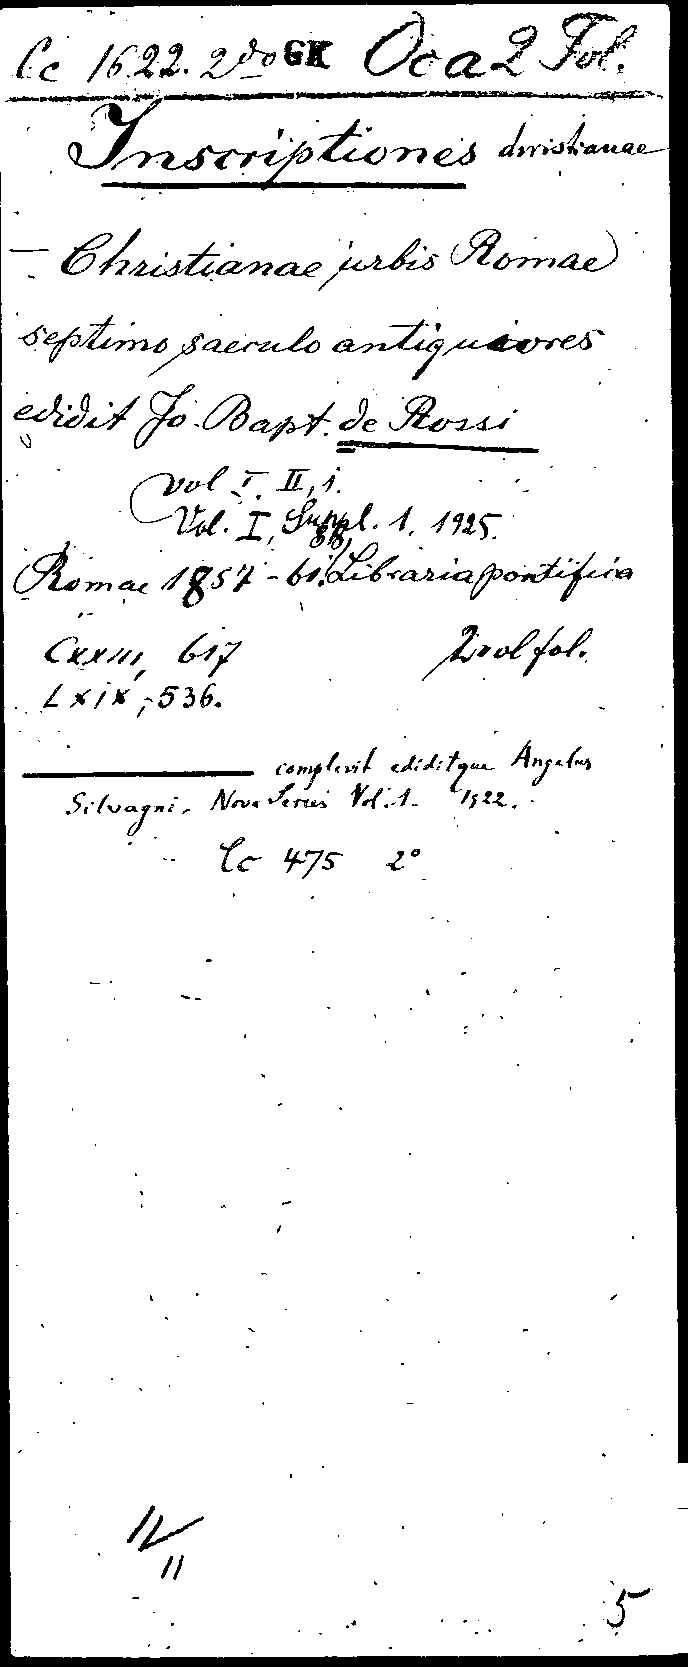 Cc 1622. 2do GK Oca 2 Fol.
Inscriptiones christianae
— Christianae urbis Romae
septimo saeculo antiquiores
edidit Jo. Bapt. de Rossi
vol I. II, 1.
Vol. I, Suppl. 1. 1925.
Romae 1857-61. Libraria pontificia
88,
CXXIII, 617 2 vol fol.
LXIX, 536.
— complevit ediditque Angelus
Silvagni. Nova Series Vol. 1. 1922.
Cc 475 2°
11
5